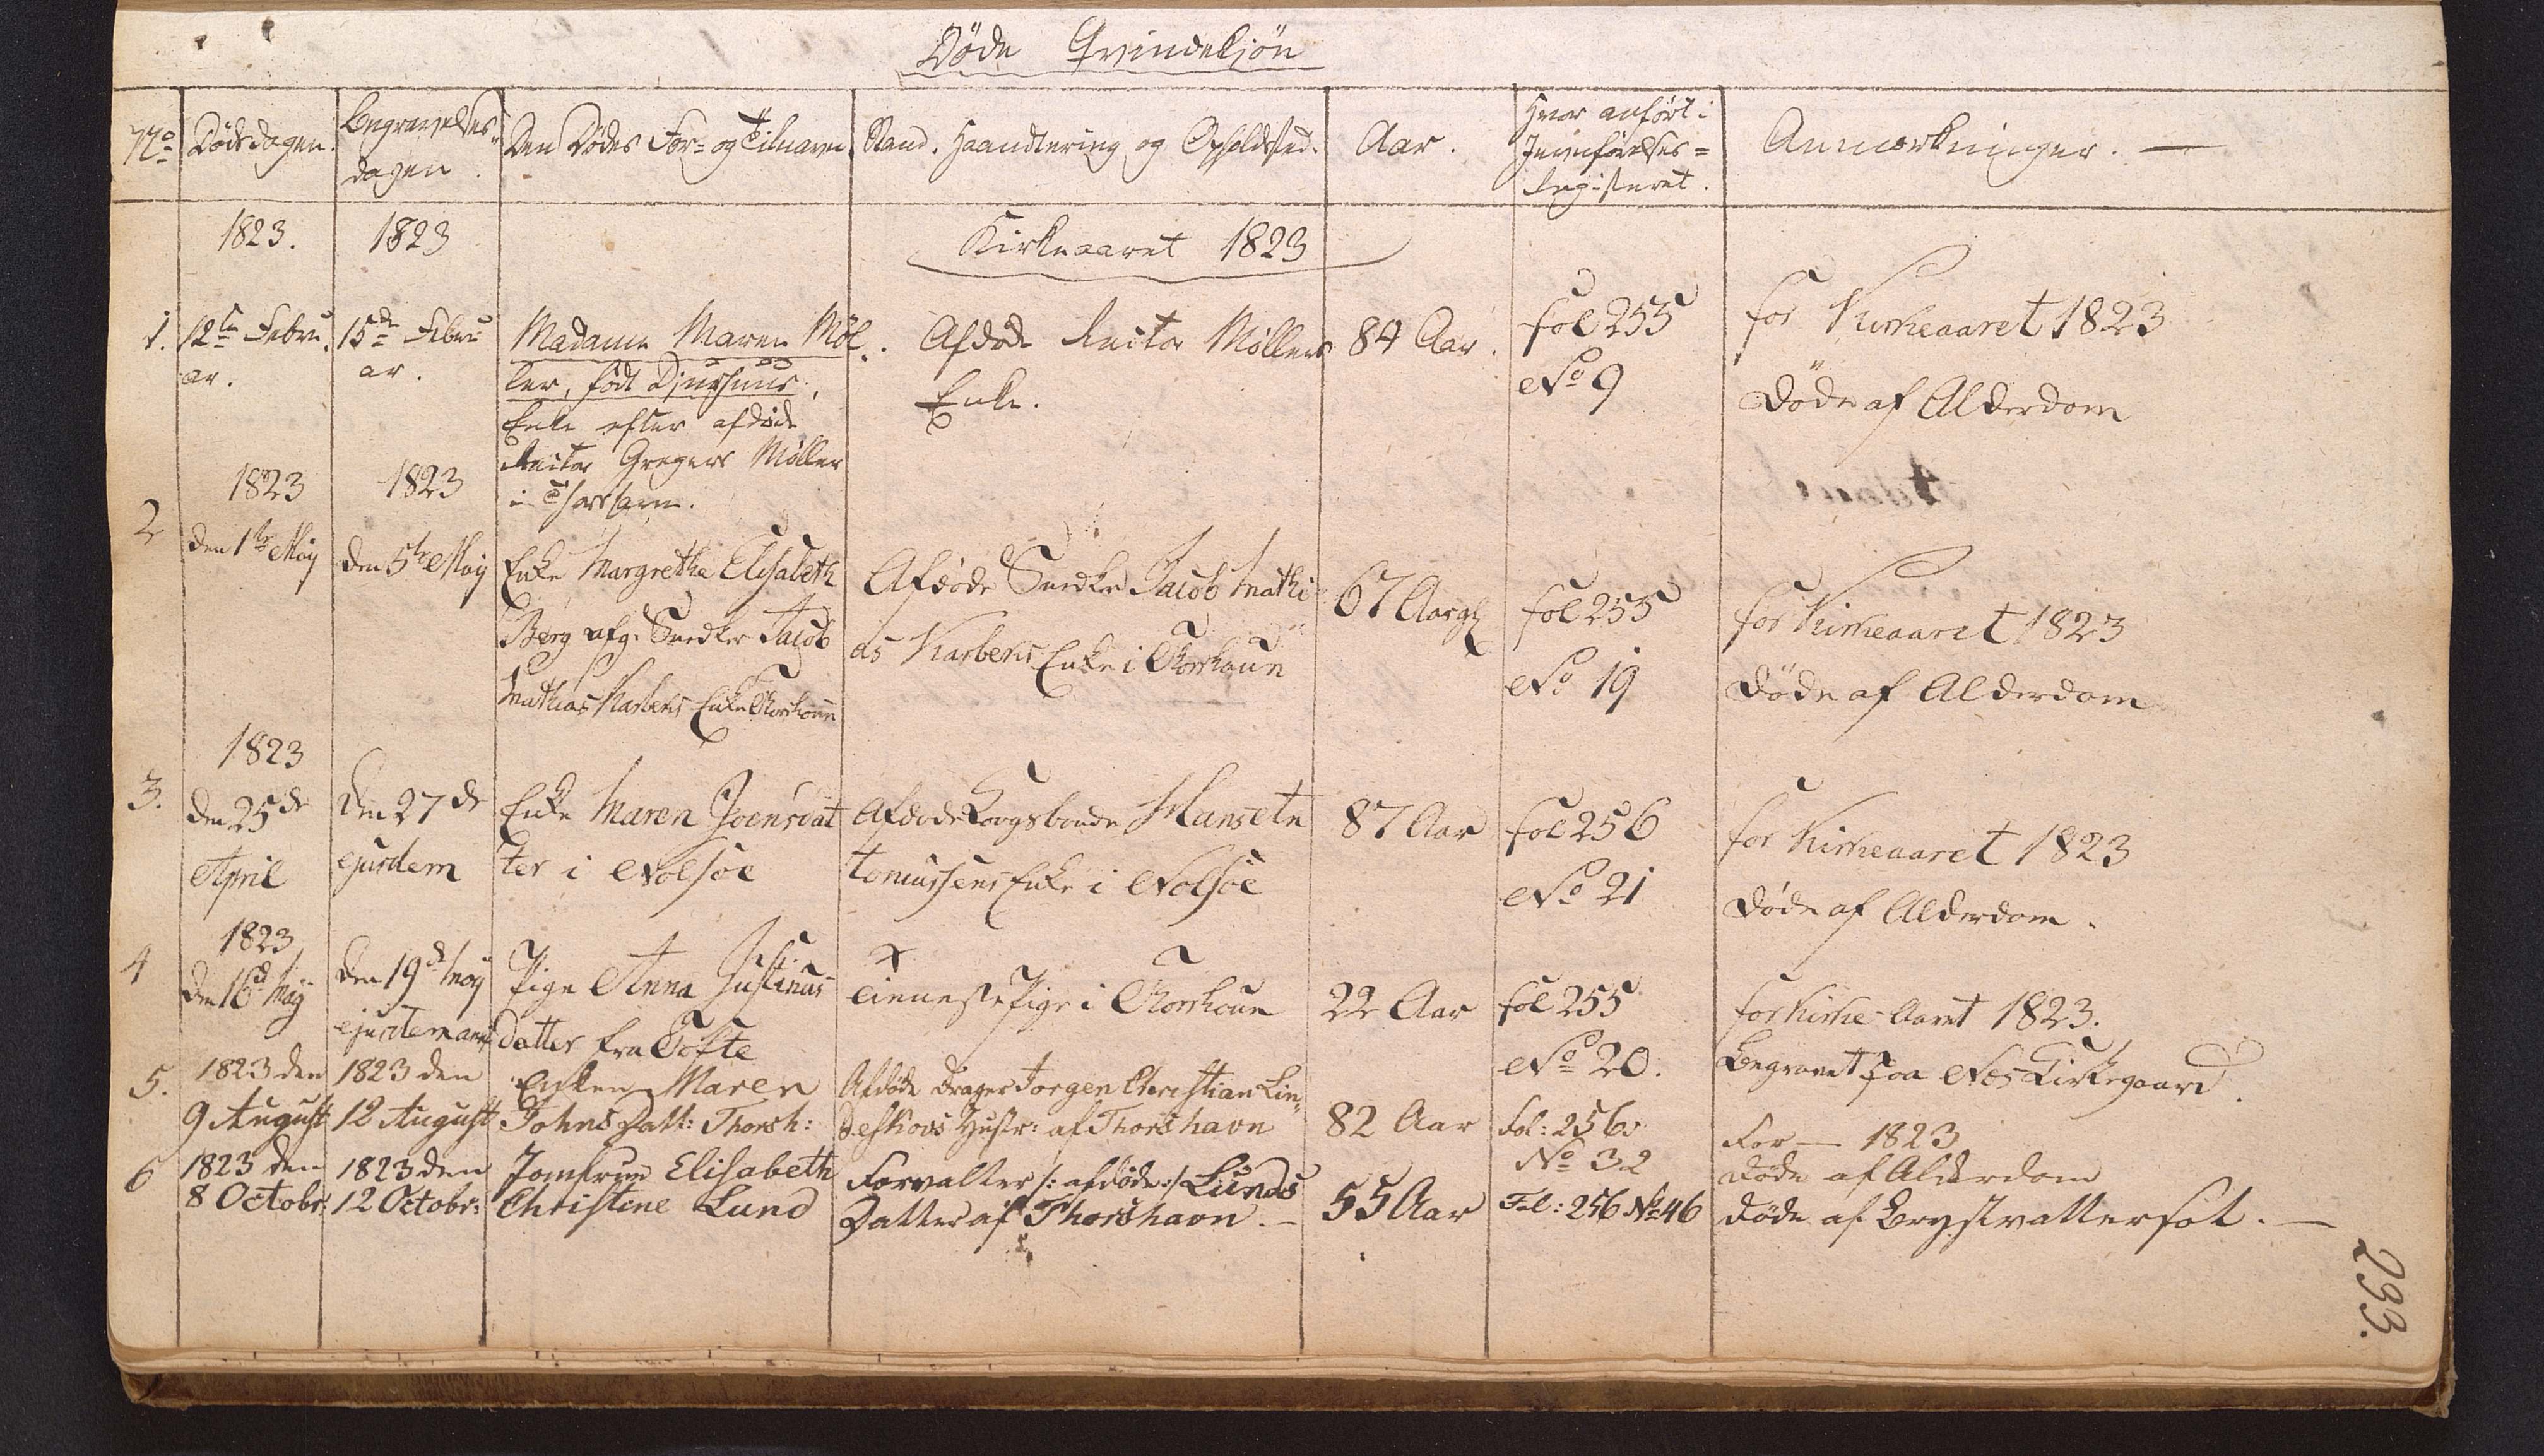 Døde Qvindekjøn
No
Dödsdagen.
Begravelses-
dagen.
Den Dödes For- og Tilnavn.
Stand. Haandtering og Opholdsted.
Aar.
Hvor anført i
Jevnførelses-
Registeret.
Anmærkninger. —
1823.
1823
Kirkeaaret 1823
1.
12te Febru
ar.
15de Febru
ar.
Madame Maren Møl
ler, född
Enke efter afdøde
Rector Gregers Møller
i Thorshavn.
Afdøde Rector Møllers
Enke.
84 Aar.
fol 255
No 9
for Kirkeaaret 1823
Døde af Alderdom
2
1823
den 1te Maij
1823
den 5te Maij
Enke Margrethe Elisabeth
Berg afg. Snedker Jacob
Mathias Karbens Enke Thorshaun
Afdøde Snedker Jacob Mathi
as Karbens Enke i Thorshaun
67 Aar
fol 255
No 19
for Kirkeaaret 1823
Døde af Alderdom
3.
1823
den 25de
April
den 27de
ejusdem
Enke Maren Joensdat
ter i Nolsöe
Afdøde Kongsbonde
Enke i Nolsöe
87 Aar
fol 256
No 21
for Kirkeaaret 1823
Døde af Alderdom.
4
1823
den 16d Maij
den 19d Maij
ejusdem
Pige Anna Justinus
datter fra Tofte
tieneste Pige i Thorshaun
22 Aar
fol 255
No 20.
for Kirke-Aaret 1823.
Begravet paa Næs Kirkegaard.
5.
1823 den
9 August
1823 den
12 August
Enken Maren
Johns Datt: Thorsh:
Afdøde Drager Jorgen Christian Lin-
deskovs Hustr: af Thorshavn
82 Aar
fol: 256.
No 32
For — 1823
Døde af Alderdom
6
1823 den
8 Octobr:
1823 den
12 Octobr:
Jomfrue Elisabeth
Christine Lund
Forvalter /: afdøde :/ Lunds
Datter af Thorshavn. —
55 Aar
Fol: 256 No 46
Døde af Brystvattersot. —
233.